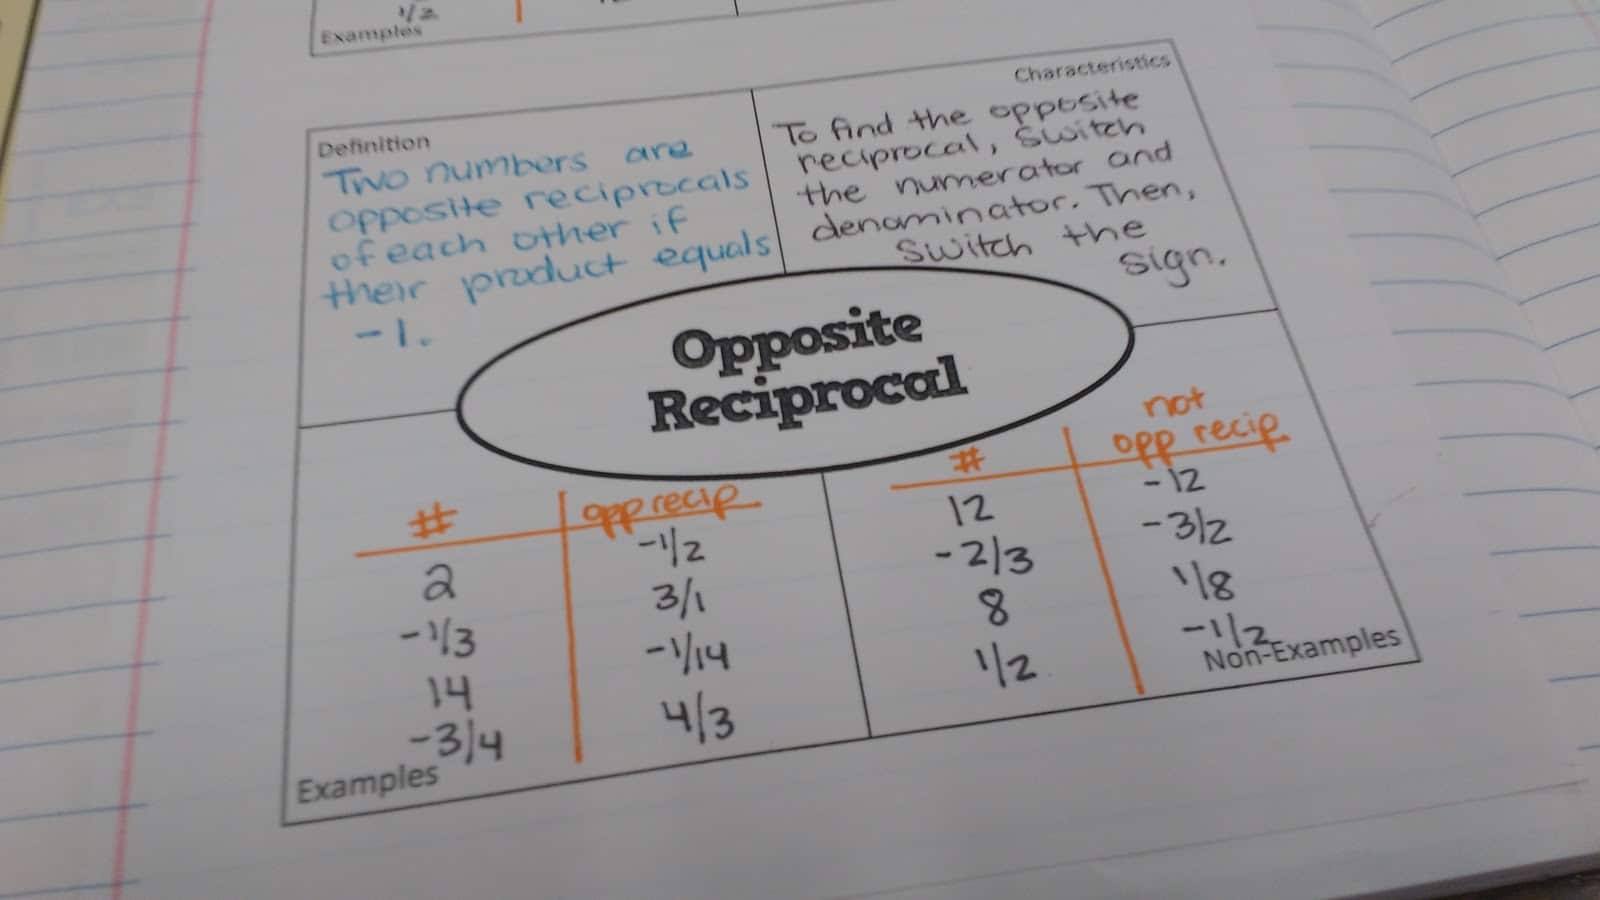 1/2
Examples
Definition
Two numbers are
opposite reciprocals
of each other if
their product equals
-1.
Characteristics
To find the opposite
reciprocal, switch
the numerator and
denominator. Then,
switch the
sign.
Opposite
Reciprocal
# opp recip
2 -1/2
-1/3 3/1
14 -1/14
-3/4 4/3
Examples
# not
opp recip
12 -12
-2/3 -3/2
8 1/8
1/2 -1/2
Non-Examples